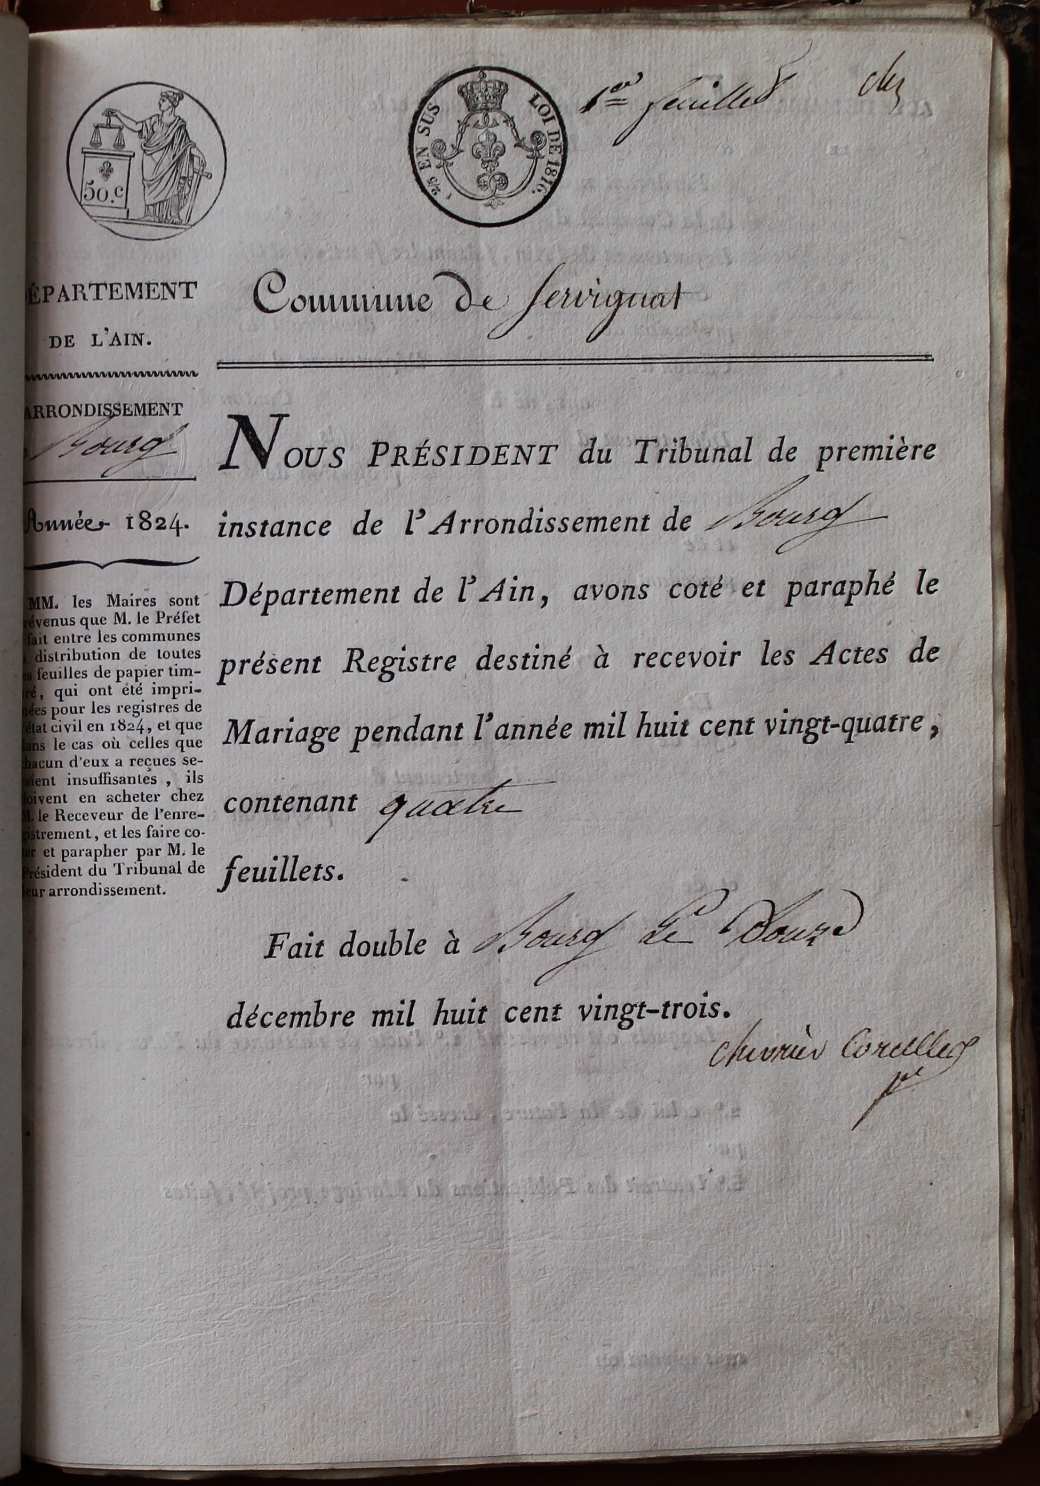 1er feuillet
chz
50.c
25 EN SUS LOI DE 1816.
DÉPARTEMENT
DE L'AIN.
ARRONDISSEMENT
Bourg
Année 1824.
MM. les Maires sont
prévenus que M. le Préfet
fait entre les communes
distribution de toutes
feuilles de papier tim-
bré, qui ont été impri-
mées pour les registres de
l'état civil en 1824, et que
dans le cas où celles que
chacun d'eux a reçues se-
raient insuffisantes, ils
doivent en acheter chez
M. le Receveur de l'enre-
gistrement, et les faire co-
ter et parapher par M. le
Président du Tribunal de
leur arrondissement.
Commune de Servignat
NOUS PRÉSIDENT du Tribunal de première
instance de l'Arrondissement de Bourg
Département de l'Ain, avons coté et paraphé le
présent Registre destiné à recevoir les Actes de
Mariage pendant l'année mil huit cent vingt-quatre,
contenant quatre
feuillets.
Fait double à Bourg Le Douze
décembre mil huit cent vingt-trois.
chevrier Corcelles